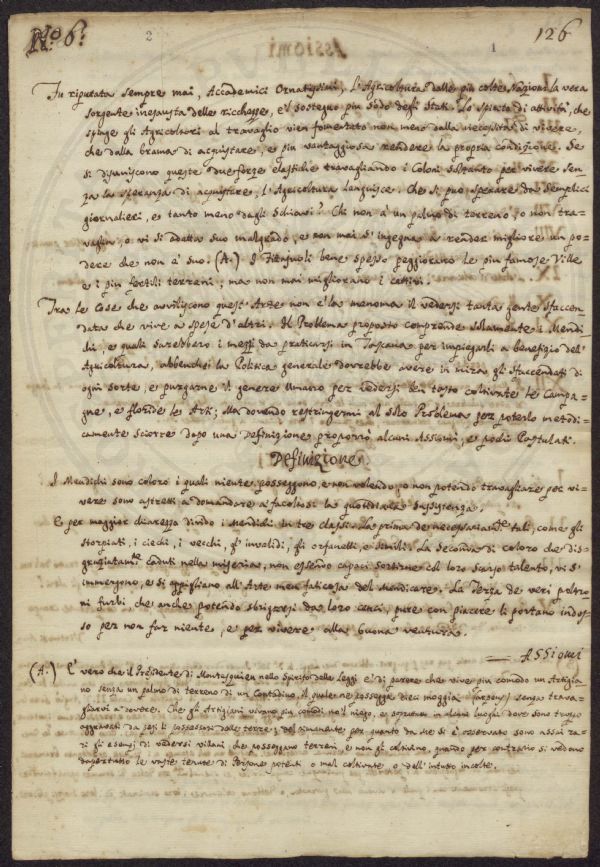 N.o 6.o
2
1
126
Fu riputata sempre mai, Accademici Ornatissimi, l'Agricoltura dalle più colte Nazioni la vera
sorgente inesausta delle ricchezze, e'l sostegno più sodo degli Stati. Lo spirito di attività, che
spinge gli Agricoltori al travaglio vien fomentato non meno dalla necessità di vivere,
che dalla brama di acquistare, e più vantaggiosa rendere la propria condizione. Se
si disuniscono queste due forze elastiche travagliando i Coloni soltanto per vivere sen-
za la speranza di acquistare, l'Agricoltura languisce. Che si può sperare da semplici
giornalieri, e tanto meno dagli schiavi? Chi non à un palmo di terreno, o non tra-
vaglia, o vi si adatta suo malgrado, e non mai s'ingegna a render migliore un po-
dere che non è suo. (A.) I Fittajuoli bene spesso peggiorano le più famose Ville
e i più fertili terreni; ma non mai migliorano i cattivi.
Tra le cose che avviliscono quest'Arte non è la menoma il vedersi tanta gente sfaccen-
data che vive a spese d'altri. Il Problema proposto comprende solamente i Mendi-
chi, e quali sarebbero i mezzi da praticarsi in Toscana per impiegarli a benefizio dell'
Agricoltura, abbenchè la Politica generale dovrebbe avere in mira gli sfaccendati di
ogni sorte, e purgarne il genere umano per vedersi ben tosto coltivate le Campa-
gne, e floride le Arti; Ma dovendo restringermi al solo Problema per poterlo metodi-
camente sciorre dopo una Definizione proporrò alcuni Assiomi, e pochi Postulati.
Definizione.
I Mendichi sono coloro i quali niente posseggono, e non volendo, o non potendo travagliare per vi-
vere sono astretti a domandare a' facoltosi la quotidiana sussistenza.
E per maggior chiarezza divido i Mendichi in tre classi. La prima de' necessariamte tali, come gli
storpiati, i ciechi, i vecchi, gl'invalidi, gli orfanelli, e simili. La seconda di coloro che dis-
graziatamte caduti nella miseria, non essendo capaci sortirne col loro scarso talento, vi s'
immergono, e si appigliano all'Arte men faticosa del mendicare. La Terza de' veri poltro-
ni furbi che anche potendo sbrigarsi da loro cenci, pure con piacere li portano indos-
so per non far niente, e per vivere alla buona ventura.
Assiomi
(A.) E' vero che il Presidente di Montesquieu nello Spirito delle Leggi è di parere che vive più comodo un Artigia-
no senza un palmo di terreno di un Contadino, il quale ne possegga dieci moggia senza trava-
gliarvi a dovere. Che gli Artigiani vivano più comodi no'l niego, e soprattutto in alcuni luoghi dove sono troppo
aggravati da pesi li possessori delle terre; del rimanente per quanto da me si è osservato sono assai ra-
ri gli esempj di vedersi villani che posseggano terreni, e non gli coltivino, quando per contrario si vedono
dapertutto le vaste tenute di Persone potenti o mal coltivate, o dell'intutto incolte.